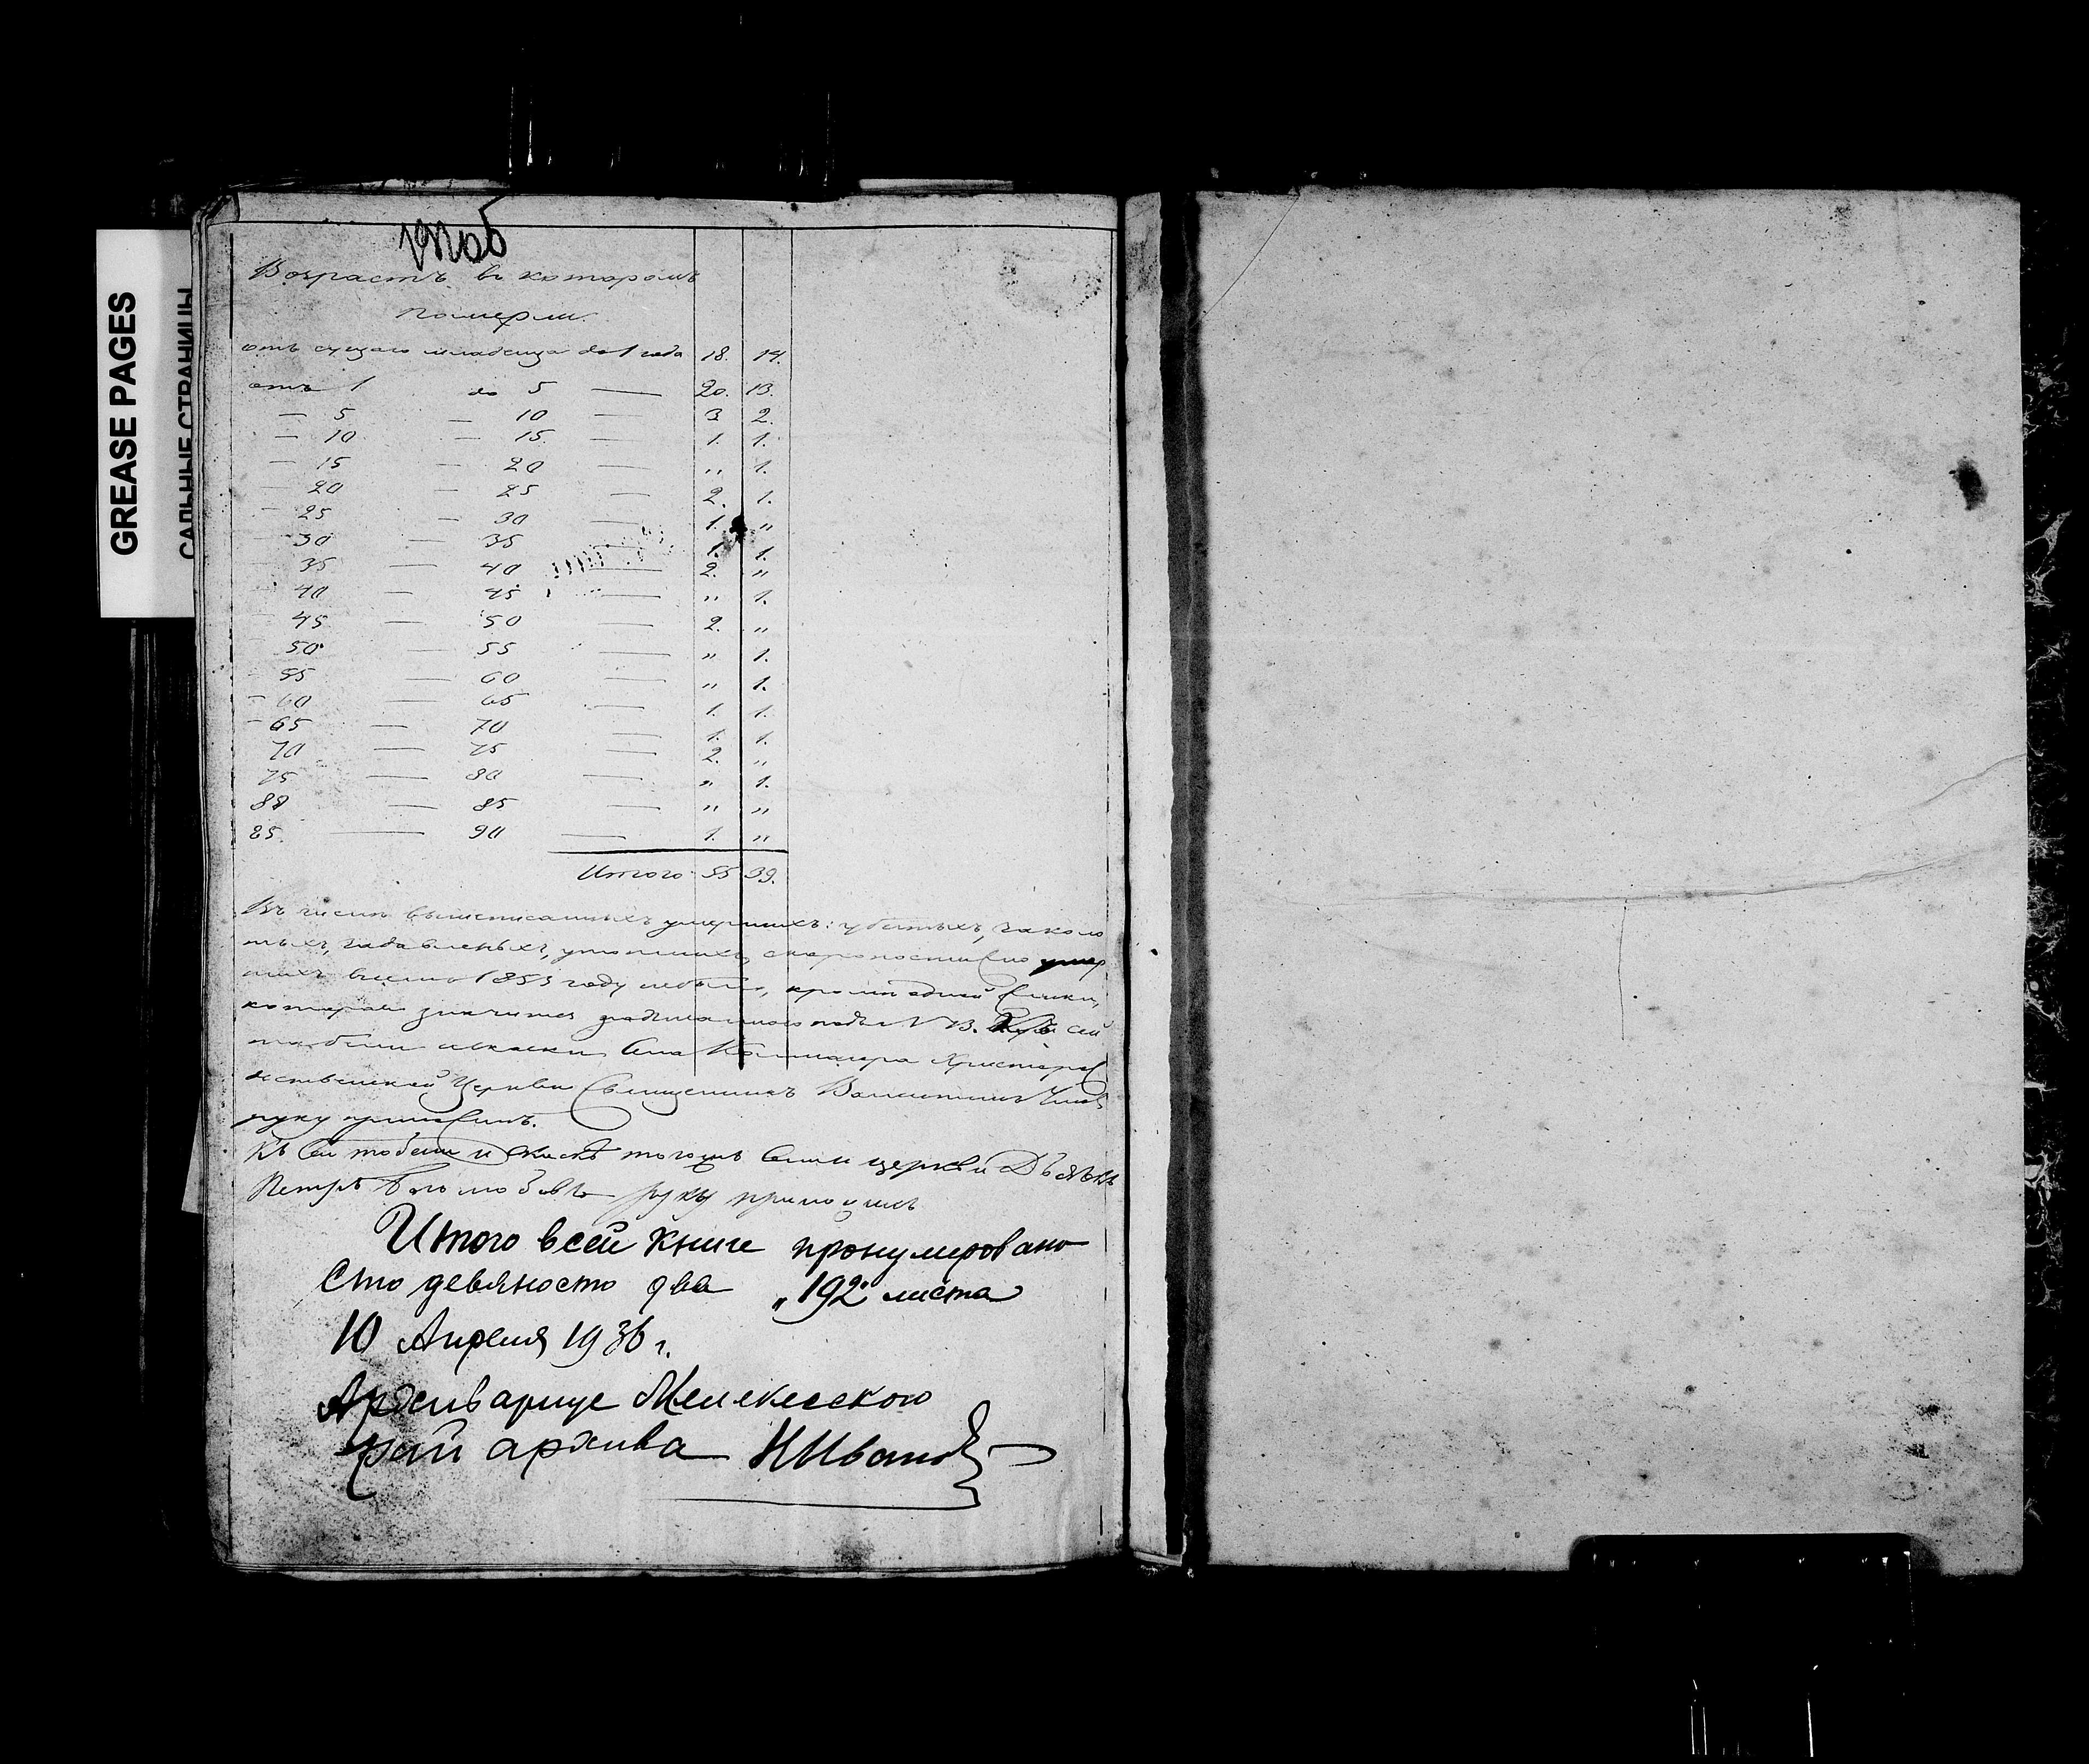 GREASE PAGES
САЛЬНЫЕ СТРАНИЦЫ
Возрастъ въ которомъ
померли.
отъ сущаго младенца до 1 года 18. 14.
отъ 1 до 5 — 20. 13.
— 5 — 10 — 3 2.
— 10 — 15. — 1. 1.
— 15 — 20 — „ 1.
— 20 — 25 — 2. 1.
— 25 — 30 — 1. „
— 30 — 35 — 1. 1.
— 35 — 40 — 2. „
— 40 — 45 — „ 1.
— 45 — 50 — 2. „
— 50 — 55 — „ 1.
— 55 — 60 — „ 1.
— 60 — 65 — 1. 1.
— 65 — 70 — 1. 1.
70 — 75 — 2. „
75 — 80 — „ 1.
80 — 85 — „ „
85. — 90 — 1. „
Итого 55 39.
Въ числѣ вышеписанныхъ умершихъ: убитыхъ, заколо
тыхъ, задавленыхъ, утопшихъ, скоропостижно умер
шихъ 1853 году небыло, кромѣ одной
которая значится подъ N 13. Къ сей
Села Христорож
дественской Церкви Священникъ Валентинъ
руку приложилъ.
Къ сей и тогожъ Села церкви Дьячекъ
Петръ руку приложилъ
Итого всей книге пронумеровано
Сто девяносто два „192" листа
10 Апреля 1936 г.
Архивариус Мелекесского
рай архива НИванов